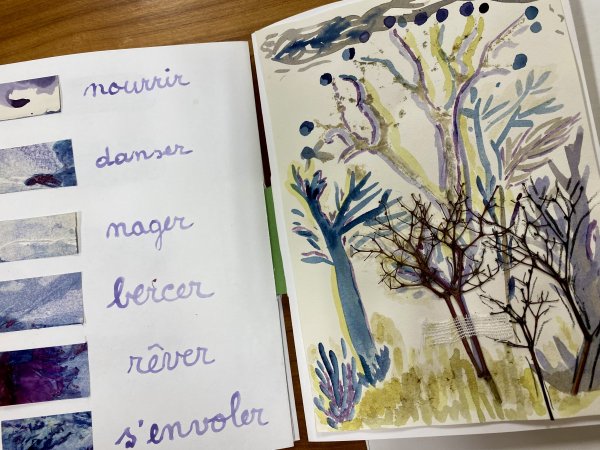 nourrir
danser
nager
bercer
rêver
s'envoler